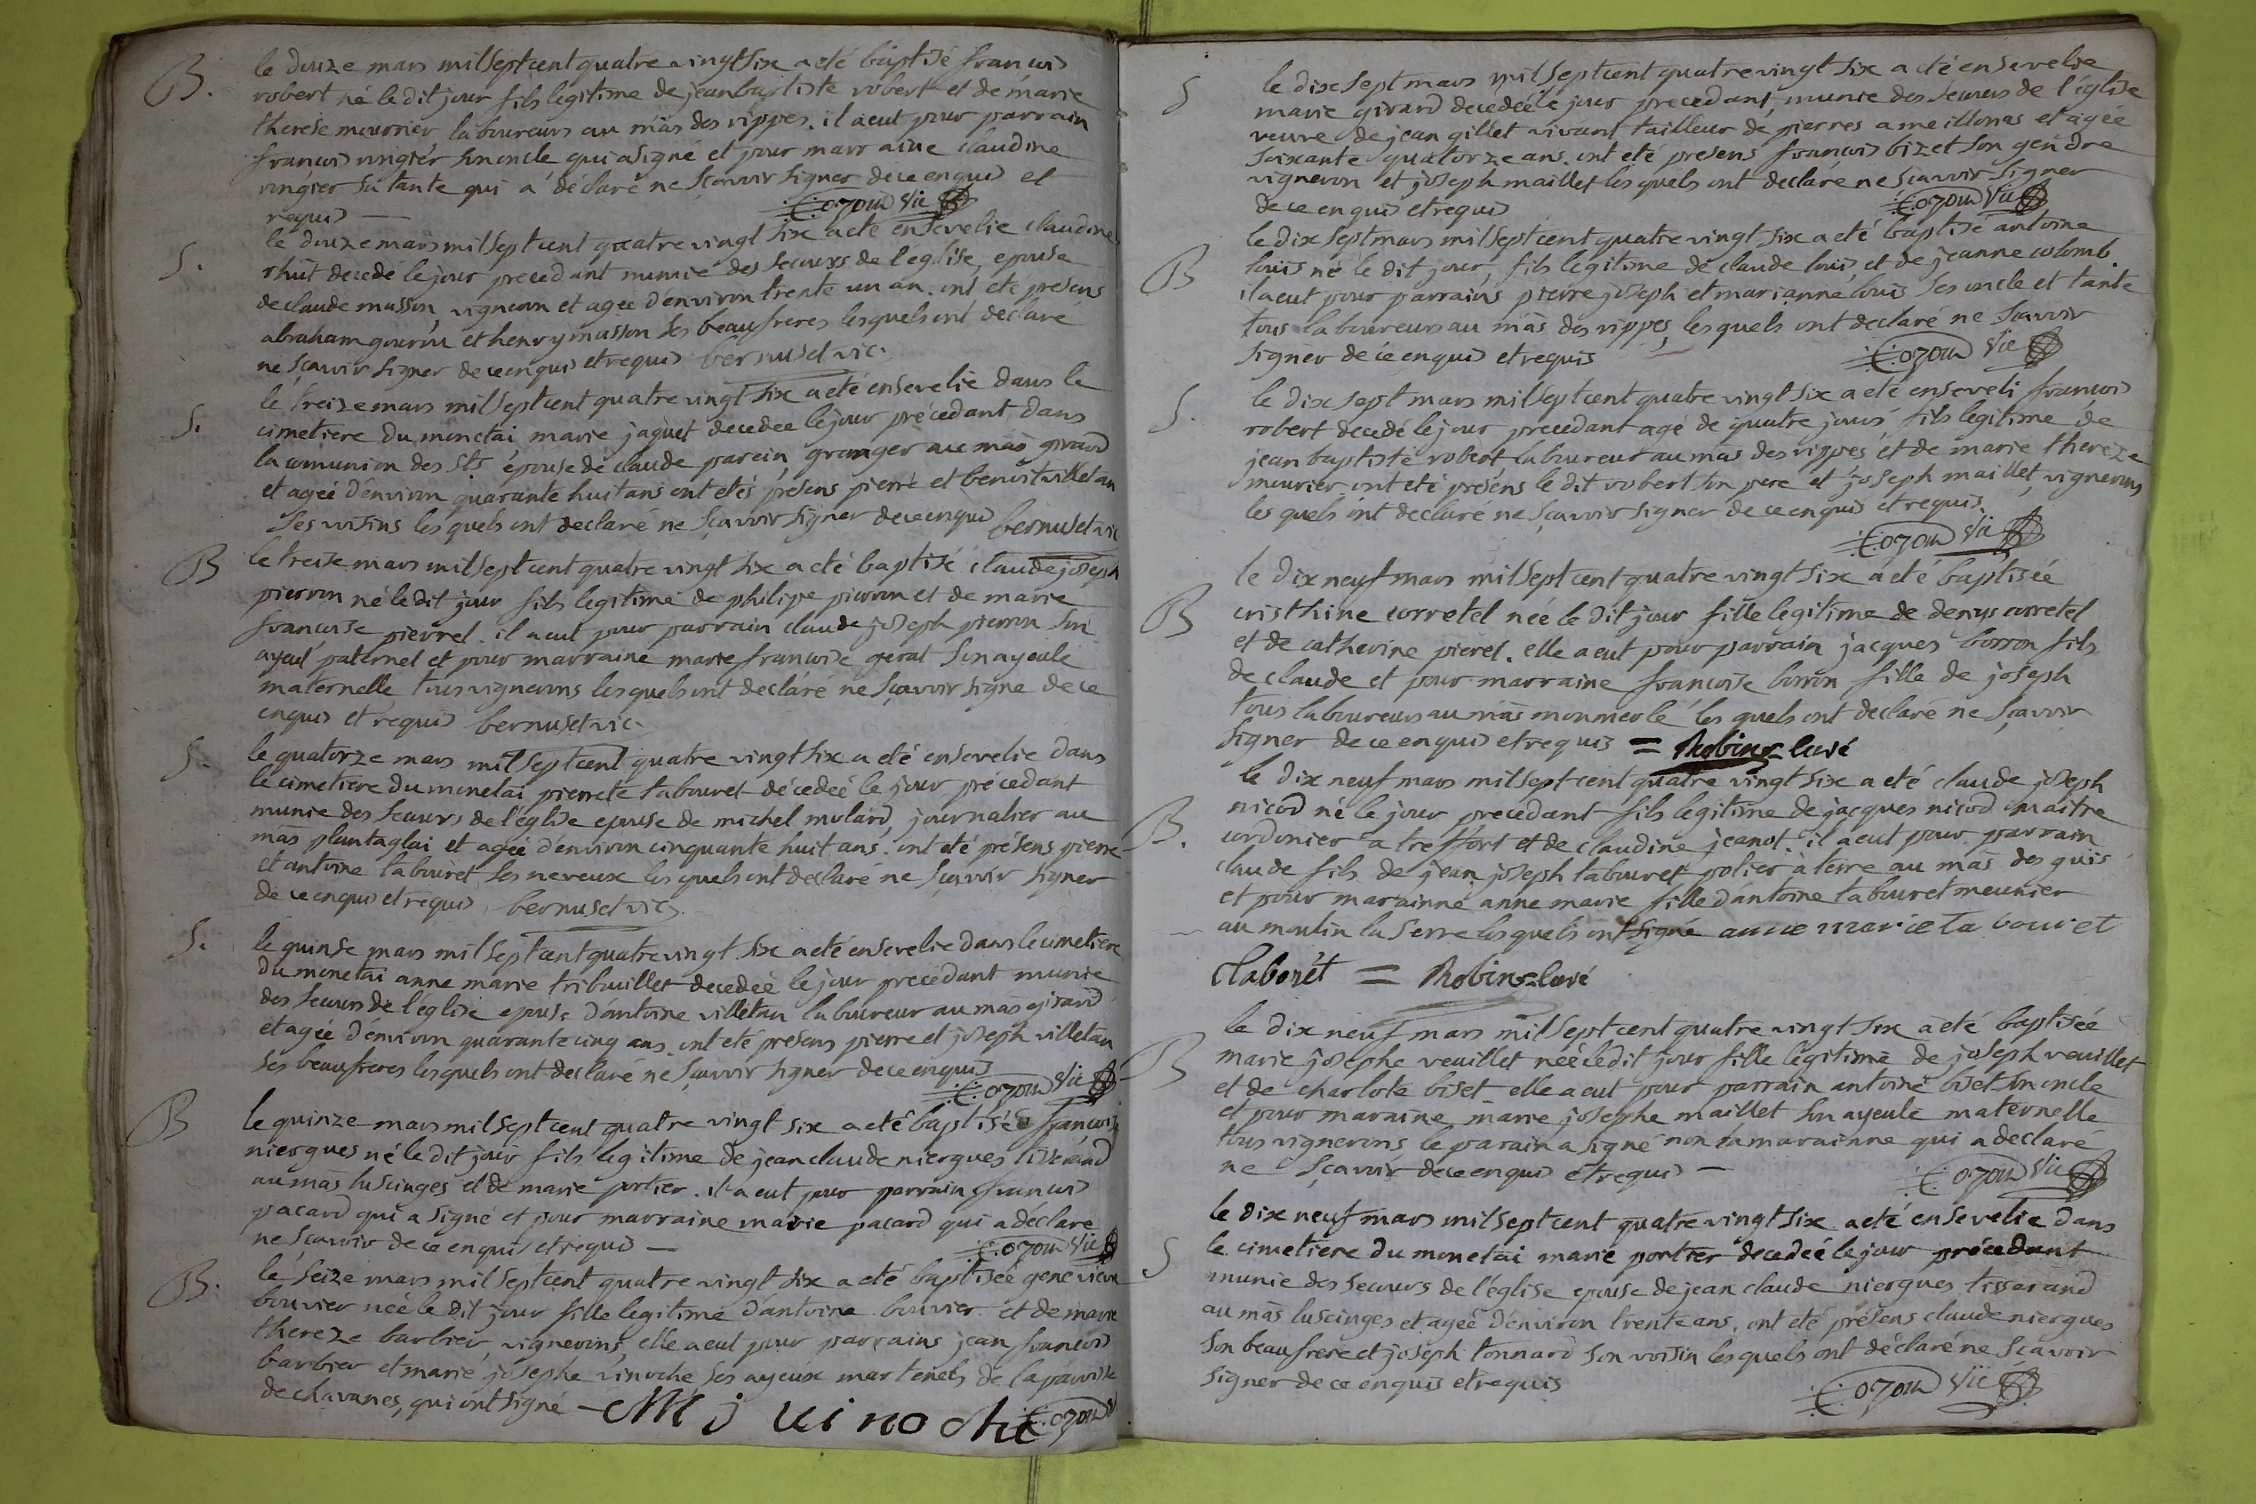 B. le douze mars mil sept cent quatre vingt six a eté baptisé francois
robert né le dit jour fils légitime de jean baptiste robert et de marie
therese meurier laboureurs au mas des rippes. il a eut pour parrain
francois vingier son oncle qui a signé et pour marraine claudine
vingier sa tante qui a déclaré ne sçavoir signer de ce enquis et
requis — Cozon vic
S. le douze mars mil sept cent quatre vingt six a eté ensevelie claudine
rhut decedé le jour precedant munie des secours de l'église, epouse
de claude masson, vigneron et agee d'environ trente un an. ont eté presens
abraham gourru et henry masson ses beaufreres lesquels ont déclaré
ne sçavoir signer de ce enquis et requis bernuset vic.
S. le treize mars mil sept cent quatre vingt six a eté ensevelie dans le
cimetiere du monetai marie jaquet decedee le jour précedant dans
la comunion des sts épouse de claude parein granger au mas girard
et agée d'environ quarante huit ans ont etés présens pierre et benoit villetan
ses voisins lesquels ont declaré ne sçavoir signer de ce enquis bernuset vic
B le treize mars mil sept cent quatre vingt six a eté baptisé claude joseph
pierron né le dit jour fils legitime de philipe pierron et de marie
francoise pierrel. il a eut pour parrain claude joseph pierron son
ayeul paternel et pour marraine marie francoise gerat son ayeule
maternelle, tous vignerons lesquels ont declaré ne sçavoir signe de ce
enquis et requis bernuset vic.
S. le quatorze mars mil sept cent quatre vingt six a eté ensevelie dans
le cimetiere du monetai pierrete tabouret décedeé le jour précedant
munie des secours de l'église epouse de michel molard, journalier au
mas plantaglai et agée d'environ cinquante huit ans. ont eté présens pierre
et antoine tabouret, ses neveux lesquels ont declaré ne sçavoir signer
de ce enquis et requis, bernuset vic.
S. le quinse mars mil sept cent quatre vingt six a eté ensevelie dans le cimetiere
du monetai anne marie tribouillet decedeé le jour precedant munie
des secours de l'église epouse d'antoine villetan laboureur au mas girard
et agée d'environ quarante cinq ans. ont eté presens pierre et joseph villetan
ses beaufreres lesquels ont declaré ne sçavoir signer de ce enquis Cozon vic
B le quinze mars mil sept cent quatre vingt six a eté baptisé francois
niergues né le dit jour fils legitime de jean claude niergues tisserand
au mas luscinges et de marie portier. il a eut pour parrain francois
pacard qui a signé et pour marraine marie pacard qui a déclaré
ne sçavoir de ce enquis et requis — Cozon vic
B. le seize mars mil sept cent quatre vingt six a eté baptisée genevieve
bouvier neé le dit jour fille legitime d'antoine bouvier et de marie
thereze barbier vignerons, elle a eut pour parrains jean francois
barbier et marie josephe vinoche ses ayeux marternels de la paroisse
de chavanes, qui ont signé — M j vinoche Cozon
S le dix sept mars mil sept cent quatre vingt six a eté ensevelie
marie girard decedeé le jour precedant, munie des secours de l'église
veuve de jean gillet vivant tailleur de pierres a meillonas et agée
soixante quatorze ans. ont eté presens francois bizet son gendre
vigneron et joseph maillet lesquels ont declaré ne sçavoir signer
de ce enquis et requis Cozon vic
B le dix sept mars mil sept cent quatre vingt six a eté baptisé antoine
louis né le dit jour, fils legitime de claude louis, et de jeanne colomb.
il a eut pour parrains pierre joseph et marianne louis ses oncle et tante
tous laboureurs au mas des rippes, lesquels ont declaré ne sçavoir
signer de ce enquis et requis Cozon vic
S. le dix sept mars mil sept cent quatre vingt six a eté enseveli francois
robert decedé le jour precedant agé de quatre jours fils legitime de
jean baptiste robert laboureur au mas des rippes et de marie thereze
meurier ont eté présens le dit robert son pere et joseph maillet, vignerons
lesquels ont declaré ne sçavoir signer de ce enquis et requis.
Cozon vic
B le dix neuf mars mil sept cent quatre vingt six a eté baptisée
cristhine corretel neé le dit jour fille legitime de denys corretel
et de catherine pierel. elle a eut pour parrain jacques borron fils
de claude et pour marraine francoise borron fille de joseph
tous laboureurs au mas monmerle lesquels ont declaré ne sçavoir
signer de ce enquis et requis = Robin curé
B. le dix neuf mars mil sept cent quatre vingt six a eté claude joseph
nicod né le jour precedant fils legitime de jacques nicod maitre
cordonier a treffort et de claudine jeanot. il a eut pour parrain
claude fils de jean joseph tabouret potier à terre au mas des guis
et pour marainne anne marie fille d'antoine tabouret meunier
au moulin la serre lesquels ont signé anne marie ta bouret
C tabouret = Robin curé
B le dix neuf mars mil sept cent quatre vingt six a eté baptisée
marie josephe veuillet neé le dit jour fille legitime de joseph veuillet
et de charlote biset elle a eut pour parrain antoine biset son oncle
et pour maraine marie josephe maillet son ayeule maternelle
tous vignerons le parain a signé non la marainne qui a declaré
ne sçavoir de ce enquis et requis — Cozon vic
S le dix neuf mars mil sept cent quatre vingt six a eté ensevelie dans
le cimetiere du monetai marie portier decedeé le jour précedant
munie des secours de l'église epouse de jean claude niergues tisserand
au mas luscinges et agée d'environ trente ans. ont eté présens claude niergues
son beaufrere et joseph tonnard son voisin lesquels ont déclaré ne sçavoir
signer de ce enquis et requis Cozon vic